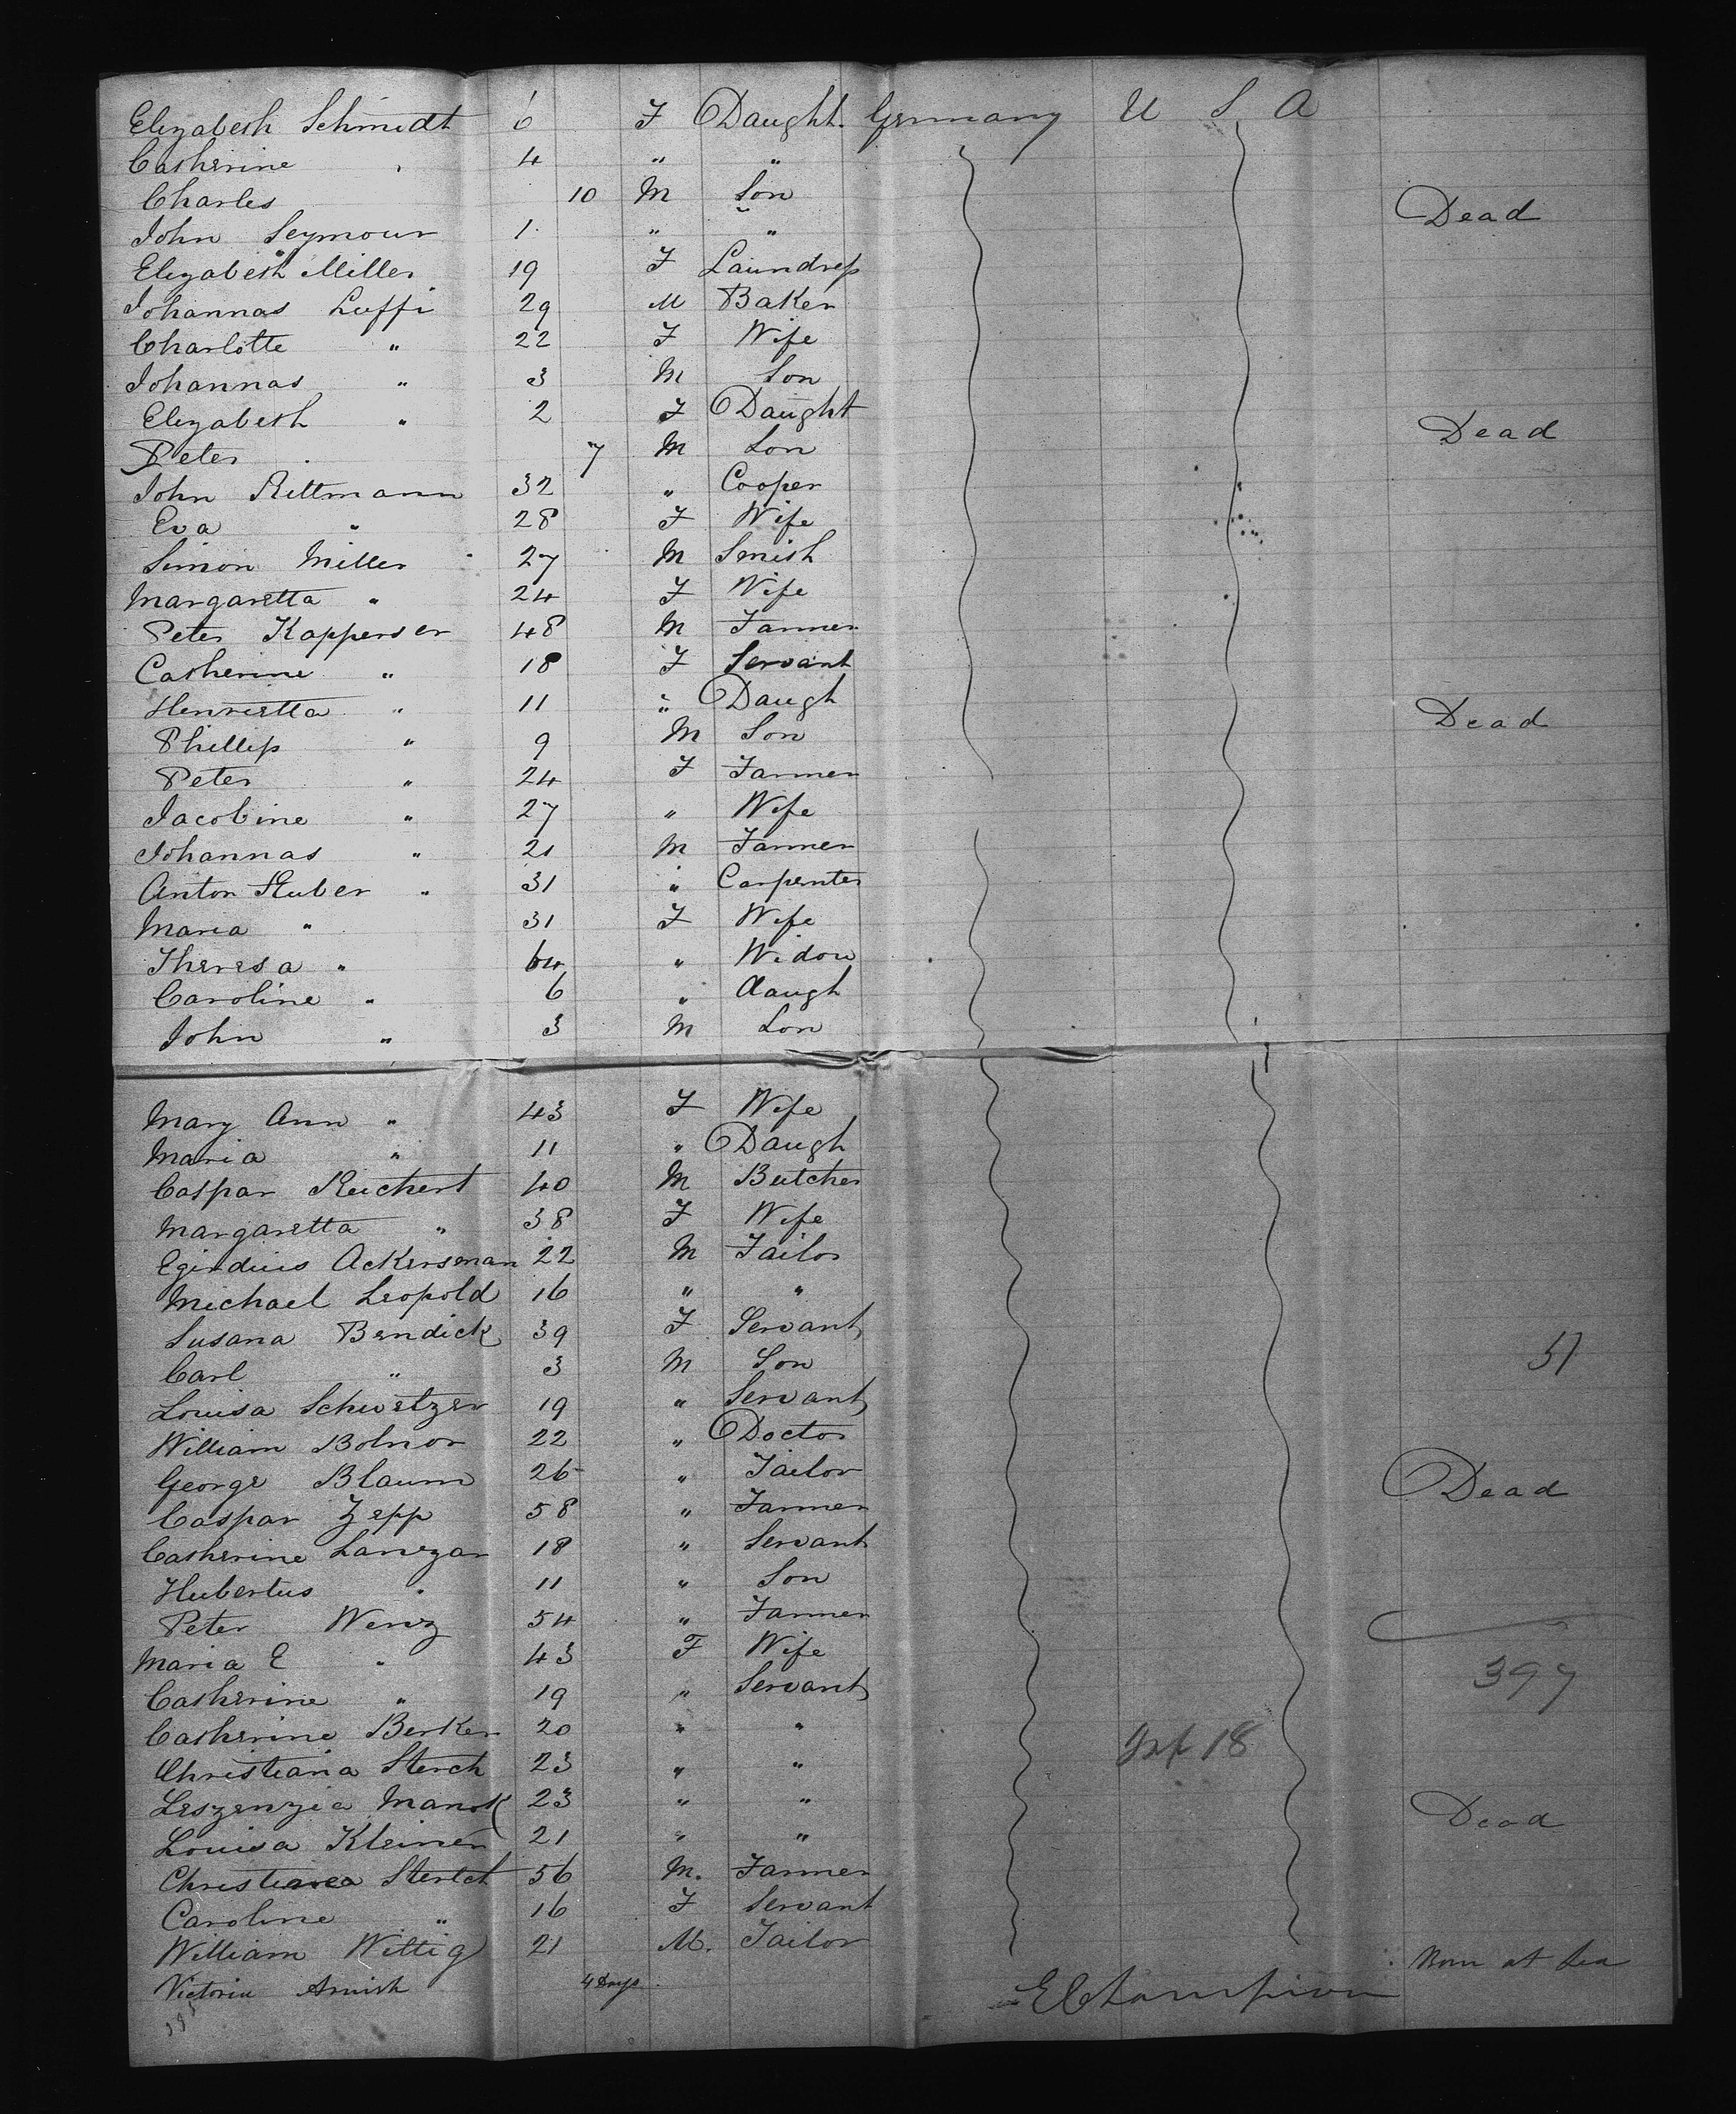 Elizabeth Schmidt 6 F Daught. Germany U S A
Catherine " 4 " "
Charles 10 M Son Dead
John Seymour 1 " "
Elizabeth Miller 19 F Laundress
Johannas Luffi 29 M Baker
Charlotte " 22 F Wife
Johannas " 3 M Son
Elizabeth " 2 F Daught
Peter 7 M Son Dead
John Rittmann 32 " Cooper
Eva " 28 F Wife
Simon Miller 27 M Smith
Margaretta " 24 F Wife
Peter Kapperser 48 M Farmer
Catherine " 18 F Servant
Henrietta " 11 " Daugh Dead
Phillip " 9 M Son
Peter " 24 F Farmer
Jacobine " 27 " Wife
Johannas " 21 M Farmer
Anton Stuber " 31 " Carpenter
Maria " 31 F Wife
Theresa " 64 " Widow
Caroline " 6 " daugh
John " 3 M Son
Mary Ann " 43 F Wife
Maria " 11 " Daugh
Caspar Reichert 40 M Butcher
Margaretta " 38 F Wife
Egidius Ackersman 22 M Tailor
Michael Leopold 16 " "
Susana Bendick 39 F Servant
Carl " 3 M Son 51
Louisa Schwetzer 19 " Servant
William Bolnor 22 " Doctor
George Blaum 26 " Tailor Dead
Caspar Zepp 58 " Farmer
Catherine Lanezar 18 " Servant
Hubertus " 11 " Son
Peter Wenz 54 " Farmer
Maria E " 43 F Wife
Catherine " 19 " Servant 397
Catherine Berker 20 " "
Christiana Sterch 23 " " Inf 18
Manok 23 " " Dead
Louisa Kleiner 21 " "
Stertch 56 M. Farmer
Caroline " 16 F Servant
William Wittig 21 M. Tailor
Victoria Amish 4 Days E Champion Born at Sea